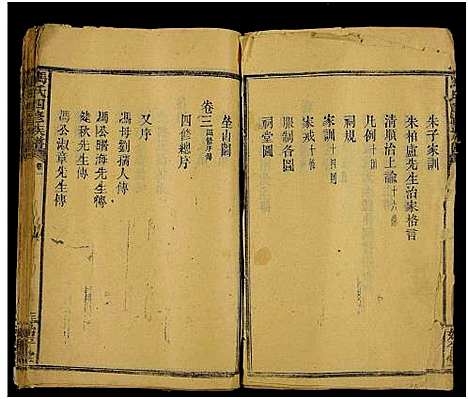 朱子家訓
朱柏盧先生治家格言
清順治上諭十六條
凡例
家訓十四則
家戒十條
服制圖
祠堂圖
坐山圖
卷三
四修總序
又序
馮母劉孺人傳
馮公勝海先生傳
錢秋先生傳
馮公淑章先生傳
馮氏四修族譜